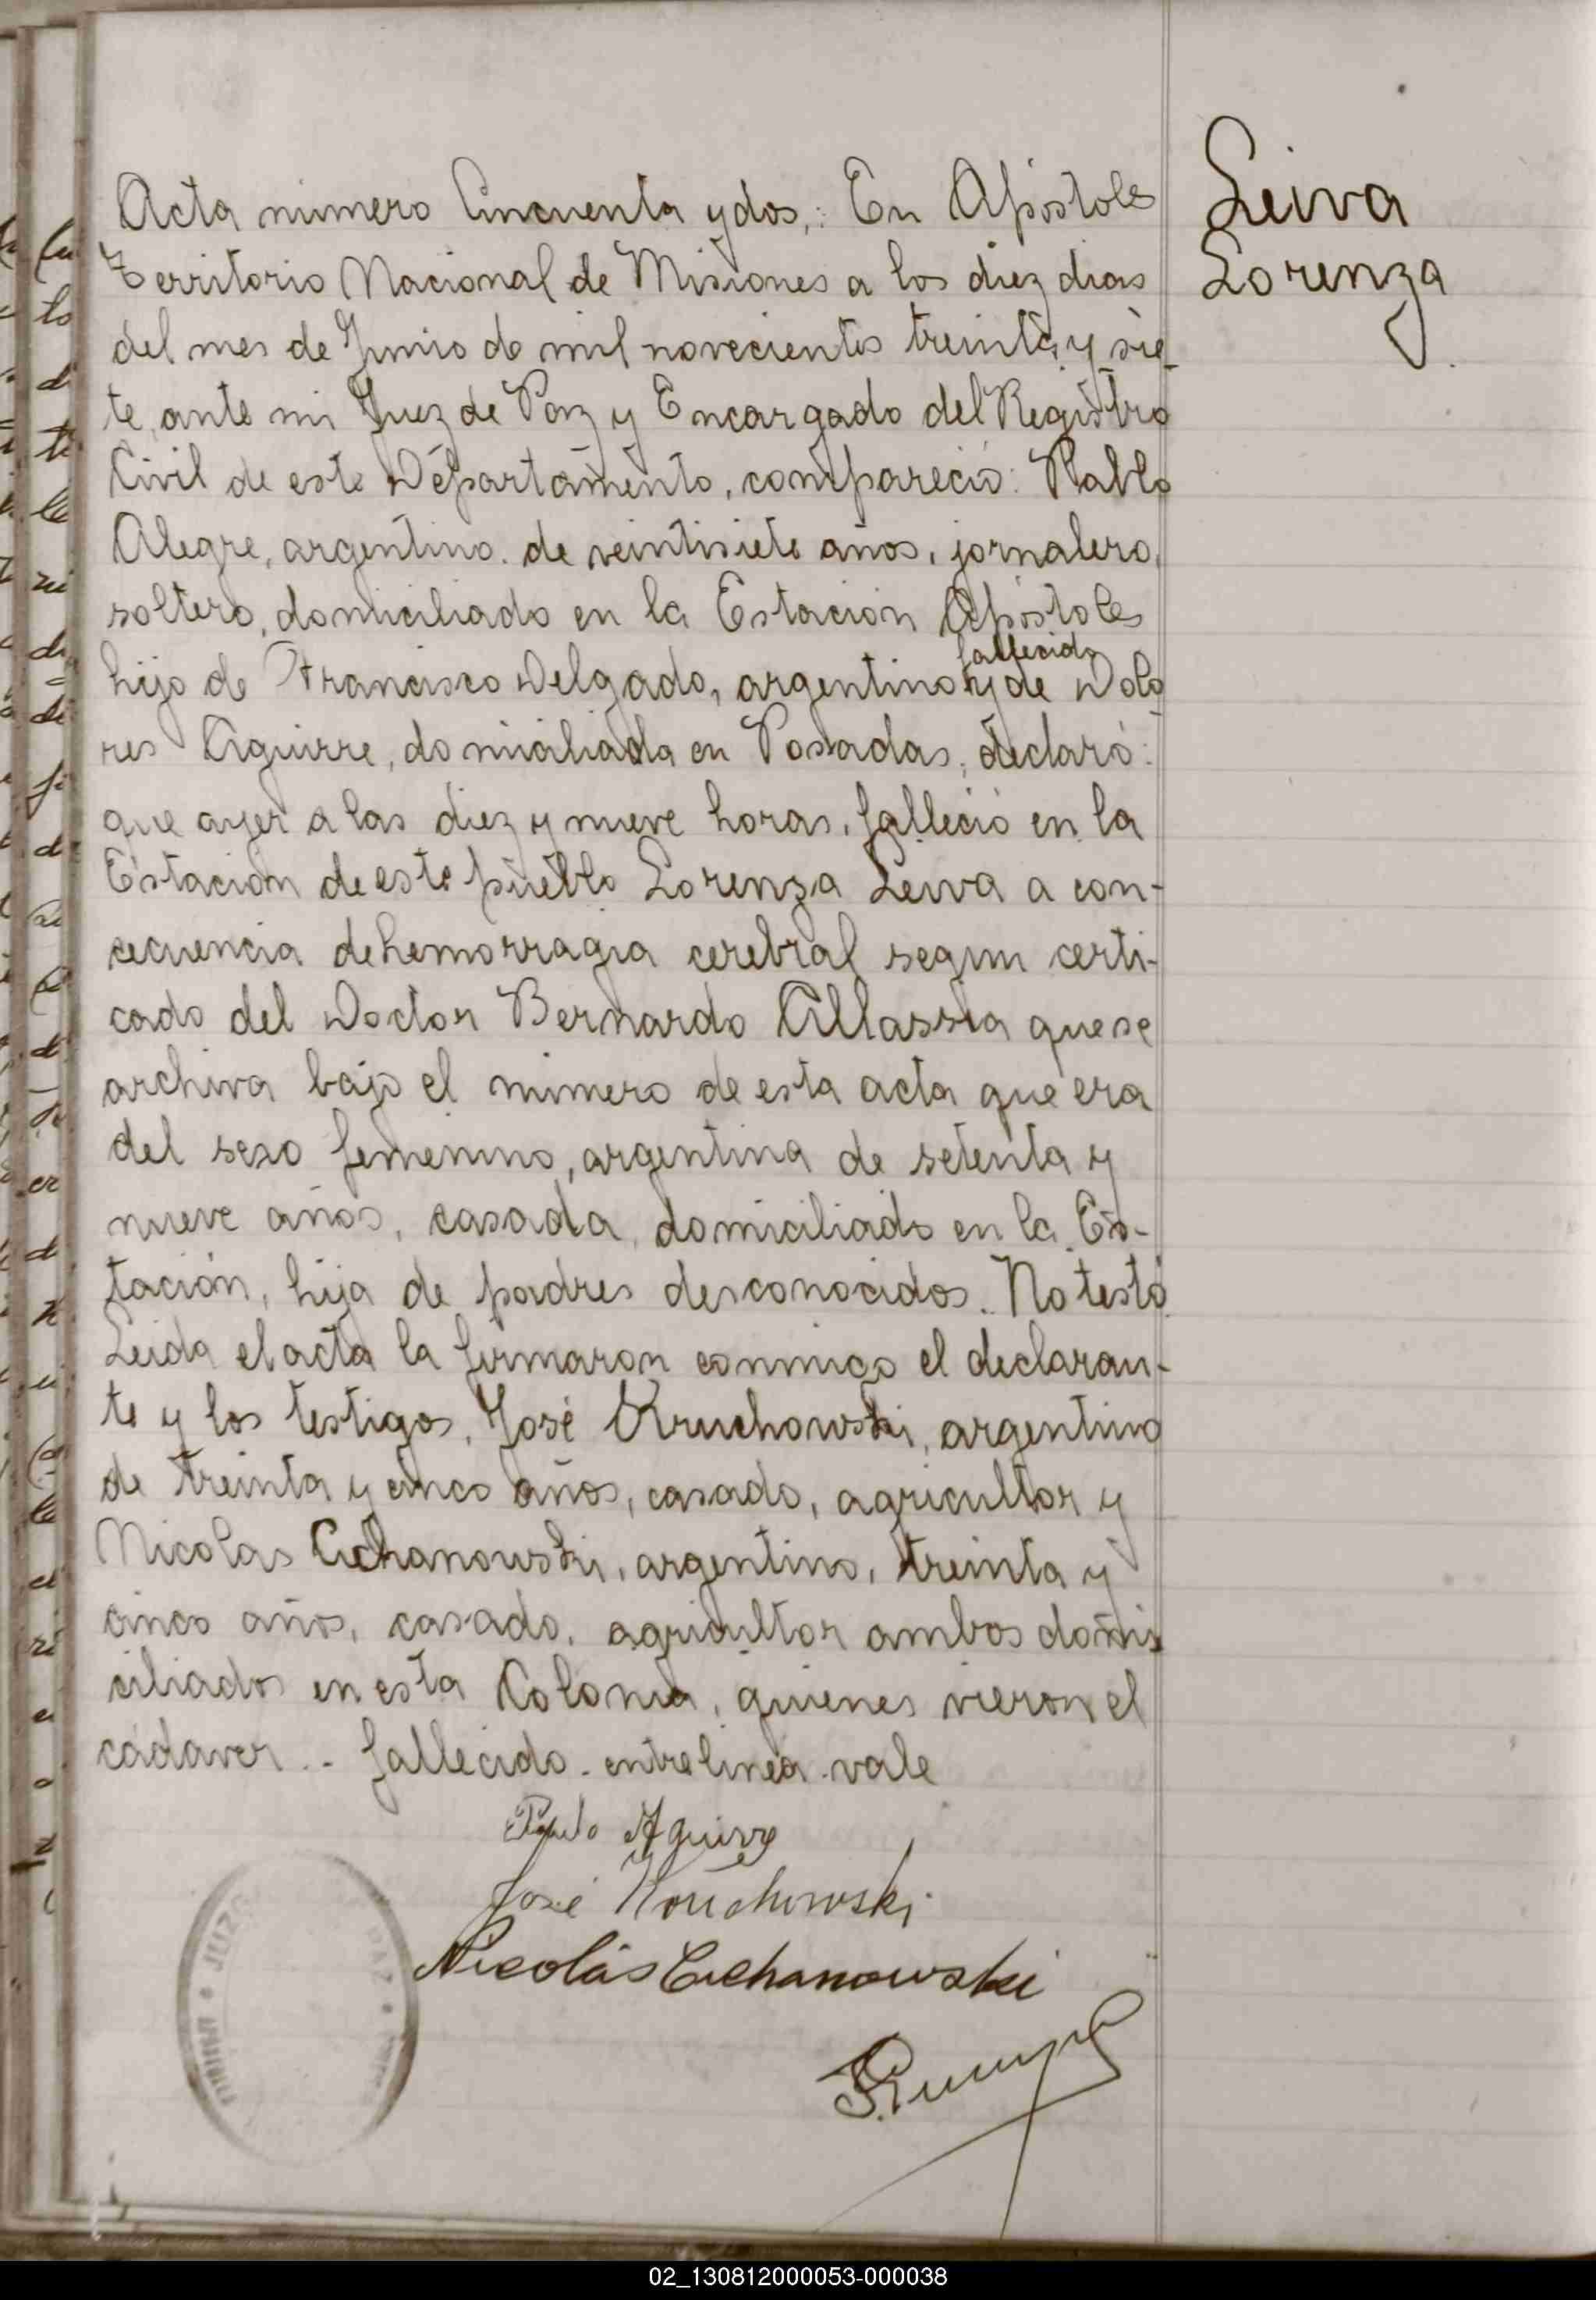 Leiva
Lorenza
Acta número Cincuenta y dos,: En Apóstoles
Territorio Nacional de Misiones a los diez dias
del mes de Junio de mil novecientos treinta y sie-
te, ante mi Juez de Paz y Encargado del Registro
Civil de este Departamento, compareció: Pablo
Alegre, argentino. de veintisiete años, jornalero,
soltero, domiciliado en la Estación Apóstoles
fallecido
hijo de Francisco Delgado, argentino y de Dolo
res Aguirre, domiciliada en Posadas, declaró:
que ayer a las diez y nueve horas, falleció en la
Estación de este pueblo Lorenza Leiva a con-
cecuencia de hemorragia cerebral segun certi-
cado del Doctor Bernardo Allassia que se
archiva bajo el número de esta acta que era
del sexo femenino, argentina de setenta y
nueve años, casada, domiciliado en la Es-
tación, hija de padres desconocidos. No testó
Leida el acta la firmaron conmigo el declaran-
te y los testigos, José Kruchowski, argentino
de treinta y cinco años, casado, agricultor y
Nicolas Cichanowski, argentino, treinta y
cinco años, casado, agricultor ambos domi
ciliados en esta Colonia, quienes vieron el
cádaver.- fallecido. entrelinea. vale
Aguirre
José Kruchowski
Nicolás Cichanowski
JUZG PAZ
02_130812000053-000038